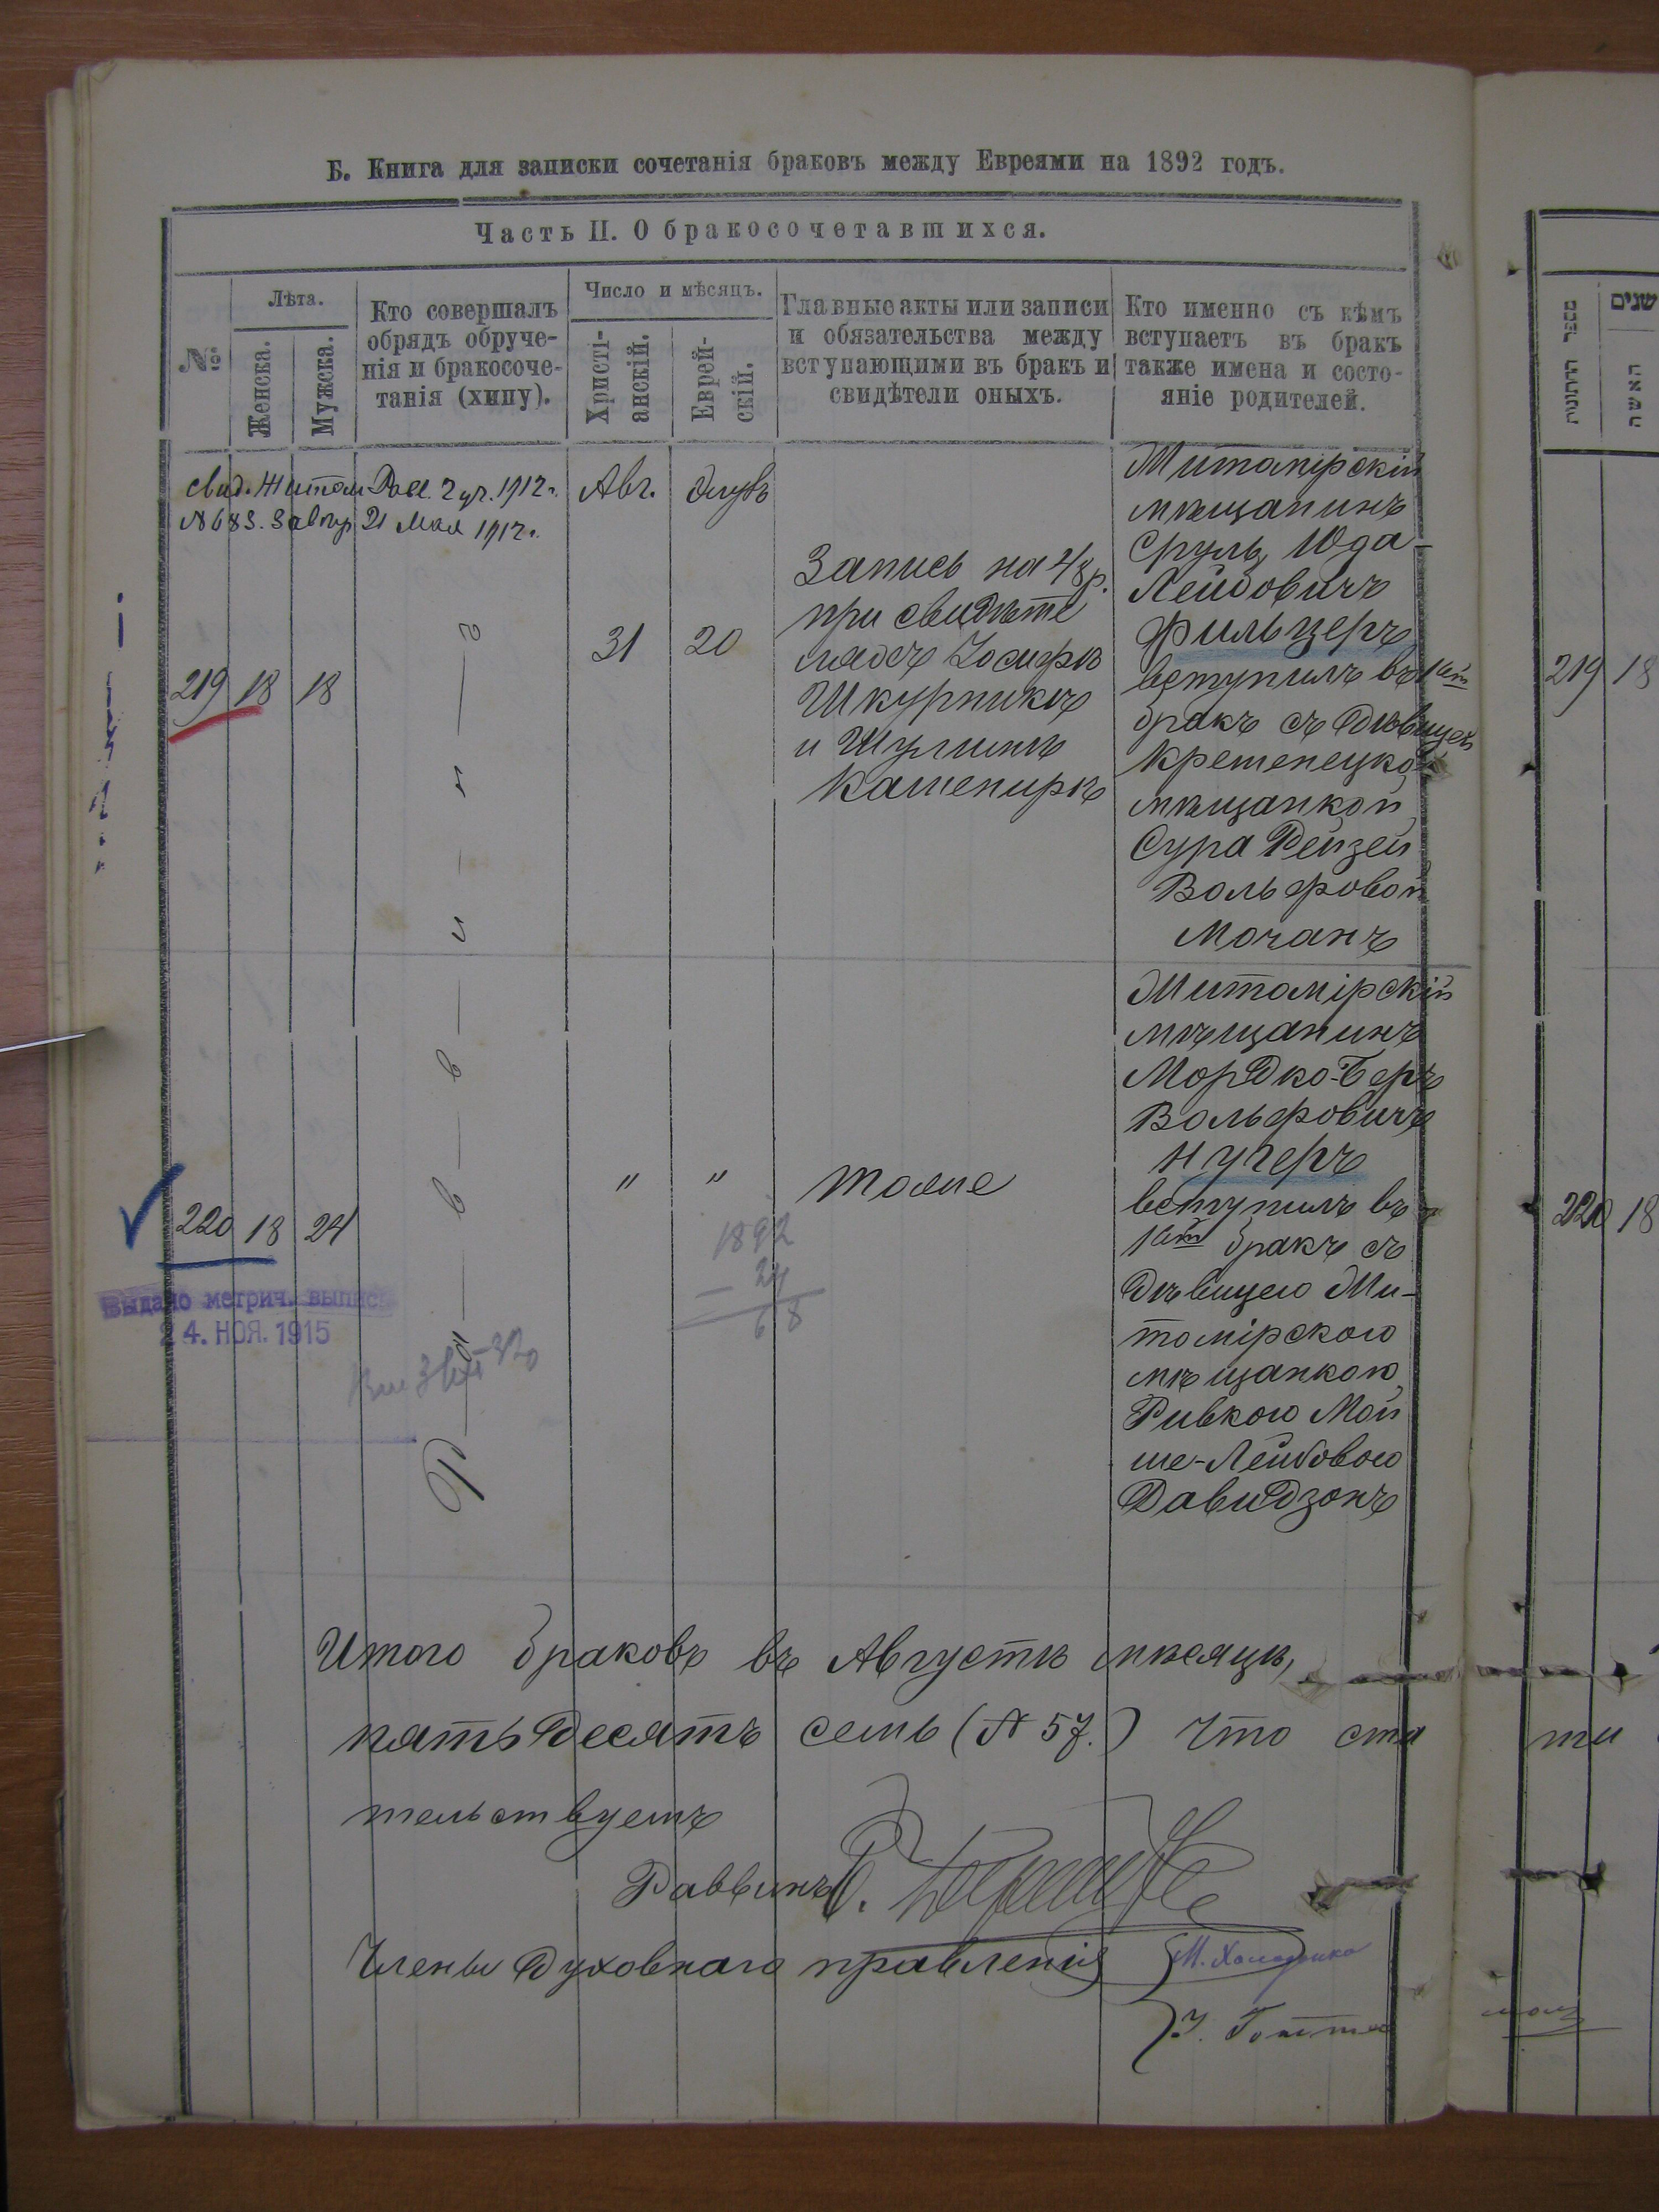 Б. Книга для записки сочетанія браковъ между Евреями на 1892 годъ.
Часть II. О бракосочетавшихся.
№
Лѣта.
Женска.
Мужска.
Кто совершалъ
обрядъ обруче-
нія и бракосоче-
танія (хипу).
Число и мѣсяцъ.
Христі-
анскій.
Еврей-
скій.
Главные акты или записи
и обязательства между
вступающими въ бракъ и
свидѣтели оныхъ.
Кто именно съ кѣмъ
вступаетъ въ бракъ
также имена и состо-
яніе родителей.
מספר החתונות
שנים
האשה
свид. Житом 2 уч. 1912 г.
№ 683. 21 Мая 1912 г.
Авг.
Элулъ
219 18 18
31
20
Запись на 48 р.
при свидѣте
лядсъ Іосифъ
Шкурникъ
и Шулимъ
Кашепиръ
Житомірскій
мѣщанинъ
Сруль Юда-
Лейбовичъ
Фильцеръ
вступилъ въ 1ый
бракъ съ дѣвицей
Кременецкой
мѣщанкой
Сура Рейзей
Вольфовой
Мочанъ
219 18
Р а в в и н
220 18 24
"
"
тоже
Житомірскій
мѣщанинъ
Мордко-Беръ
Вольфовичъ
Нугеръ
вступилъ въ
1ый бракъ съ
дѣвицею Жи-
томірскою
мѣщанкою
Ривкою Мой
ше-Лейбовою
Давидзонъ
220 18
1892
24
68
Выдано метрич. выпись
24. НОЯ. 1915
Итого браковъ въ Августѣ мѣсяцѣ
пятьдесятъ семь (№ 57.) что сти
тельствуемъ
Раввинъ
Члены духовнаго правленія